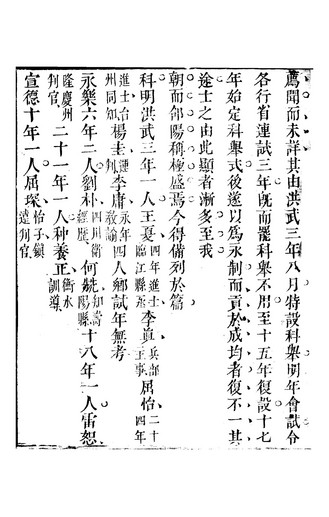 薦聞而未詳其由洪武三年八月特設科舉明年會試令
各行省連試三年旣而罷科舉不用至十五年復設十七
年始定科舉式後遂以爲永制而貢於成均者復不一其
途士之由此顯者漸多至我
朝而郃陽稱極盛焉今得備列於篇
科明洪武三年一人王夏四年進士臨江縣丞李眞兵部主事屈怡二十四年
進士台州同知楊圭判官李庸永年敎諭四人鄉試年無考
永樂六年二人劉朴四川衛經歷何競知嵩陽縣十八年一人雷恕
隆慶州判官二十一年一人种養正衡水訓導
宣德十年一人屈琛怡子鎭遠判官